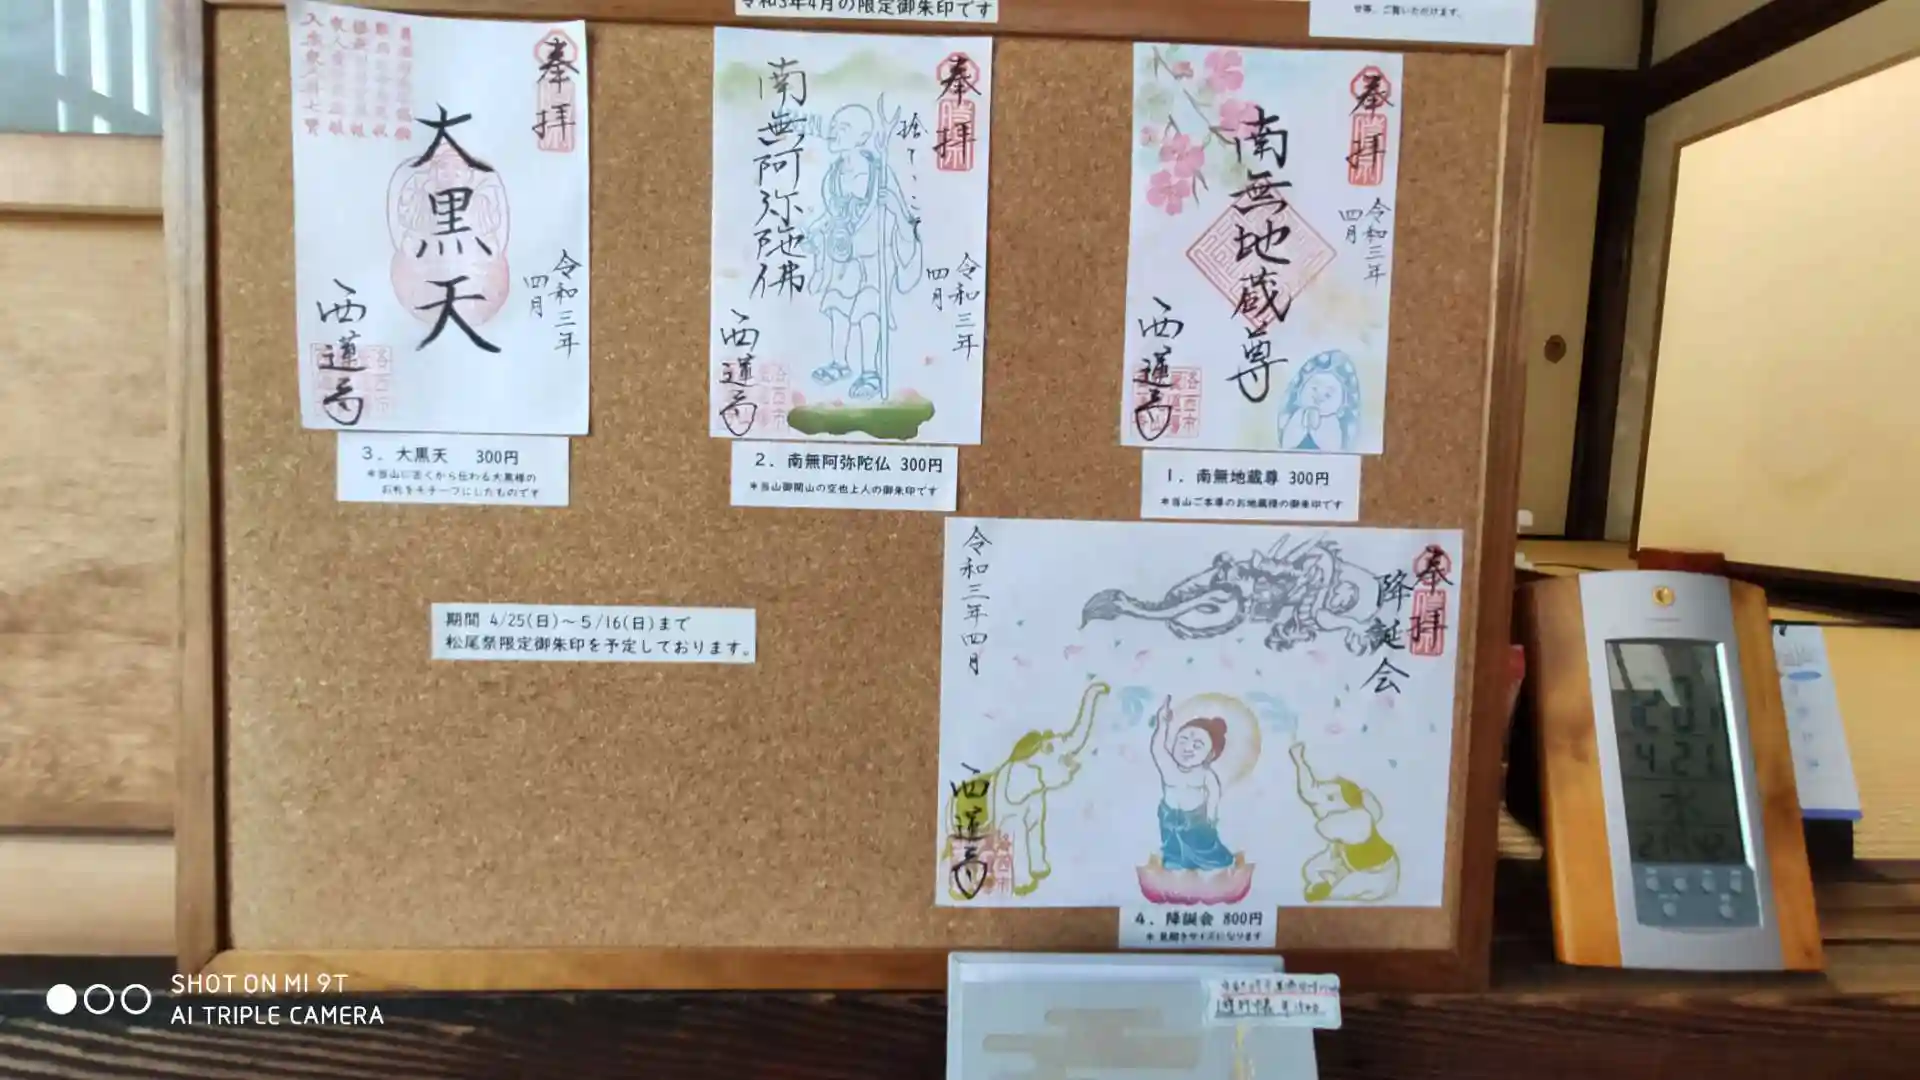 令和3年4月の限定御朱印です
せ等、ご覧いただけます。
奉拝
大黒天
令和三年
四月
西蓮寺
3. 大黒天 300円
*当山に古くから伝わる大黒様の
お札をモチーフにしたものです
奉拝
捨てゝこそ
南無阿弥陀佛
令和三年
四月
西蓮寺
2. 南無阿弥陀仏 300円
*当山御開山の空也上人の御朱印です
奉拝
南無地蔵尊
令和三年
四月
西蓮寺
1. 南無地蔵尊 300円
*当山ご本尊のお地蔵様の御朱印です
期間 4/25(日)~5/16(日)まで
松尾祭限定御朱印を予定しております。
奉拝
降誕会
令和三年四月
西蓮寺
4. 降誕会 800円
* 見開きサイズになります
4 21
水
SHOT ON MI 9T
AI TRIPLE CAMERA